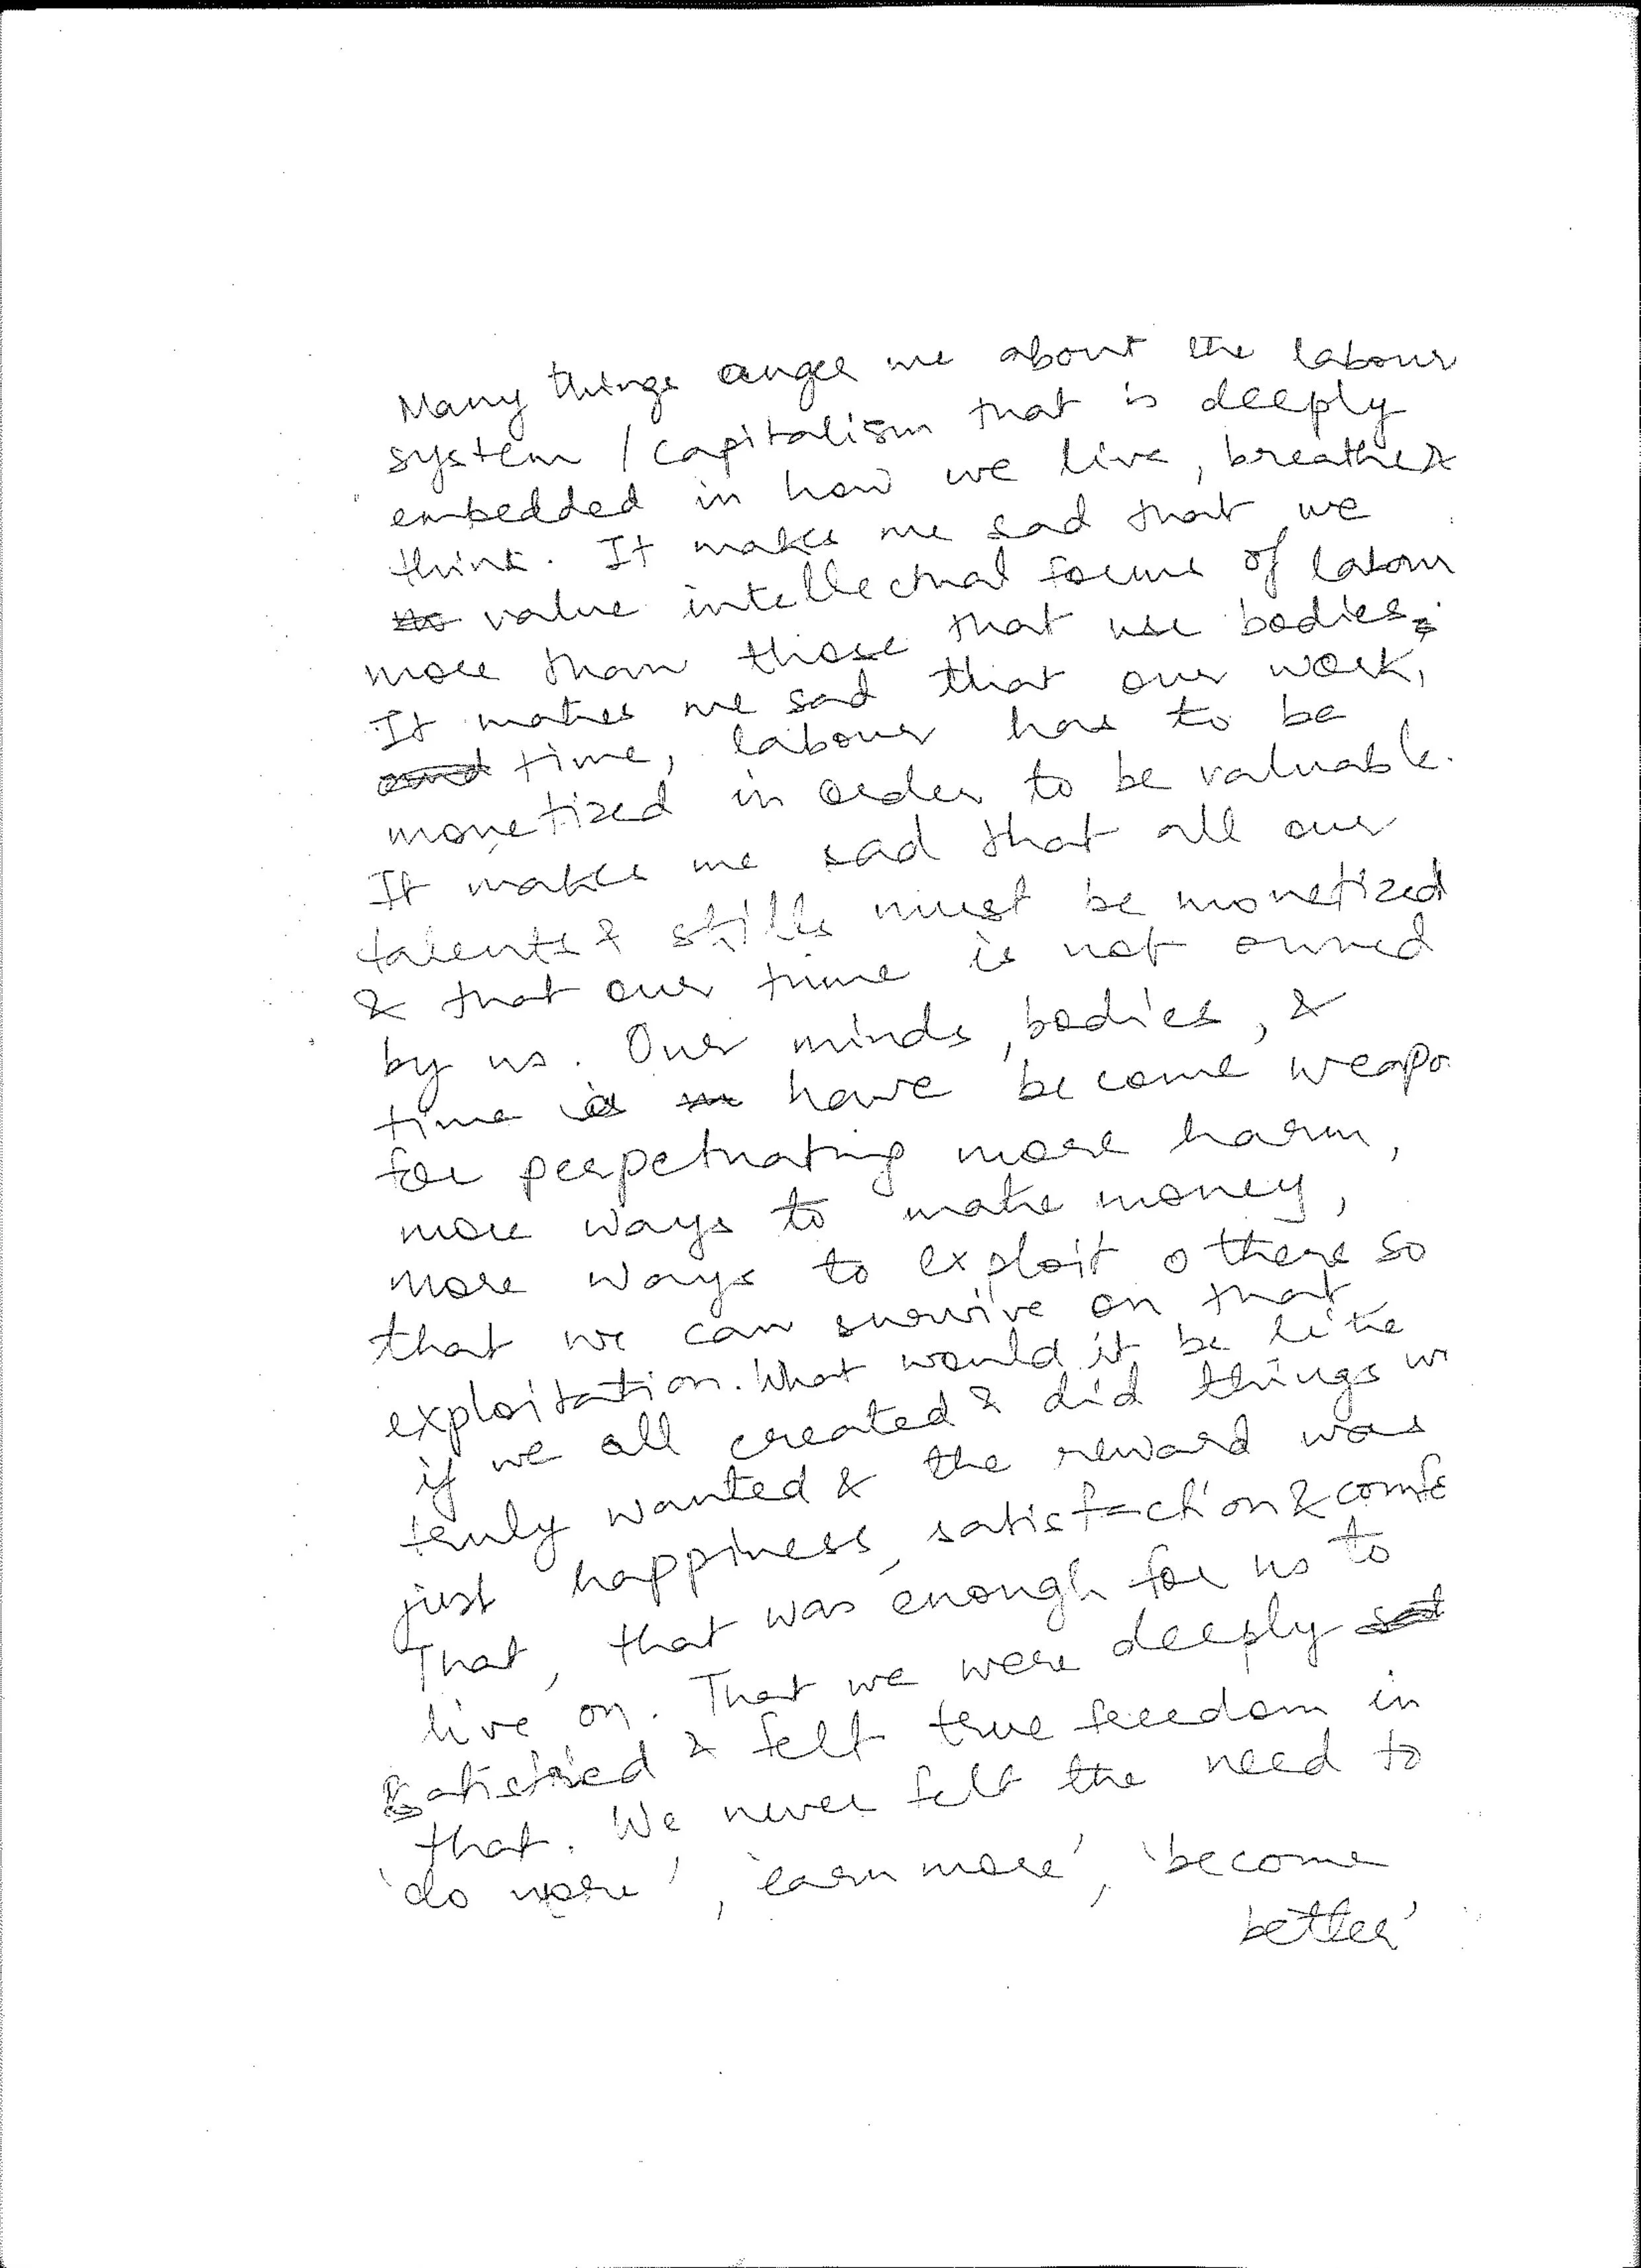 Many things anger me about the labour
system / capitalism that is deeply
embedded in how we live, breathe &
think. It makes me sad that we
value intellectual forms of labour
more than those that use bodies.
It makes me sad that our work,
time, labour has to be
monetized in order to be valuable.
It makes me sad that all our
talents & skills must be monetized
& that our time is not owned
by us. Our minds, bodies, &
time have become weapo
for perpetuating more harm,
more ways to make money,
more ways to exploit others so
that we can survive on that
exploitation. What would it be like
if we all created & did things w
truly wanted & the reward was
just happiness, satisfaction & comfo
That, that was enough for us to
live on. That we were deeply
satisfied & felt true freedom in
that. We never felt the need to
'do more', 'earn more', 'become
better'